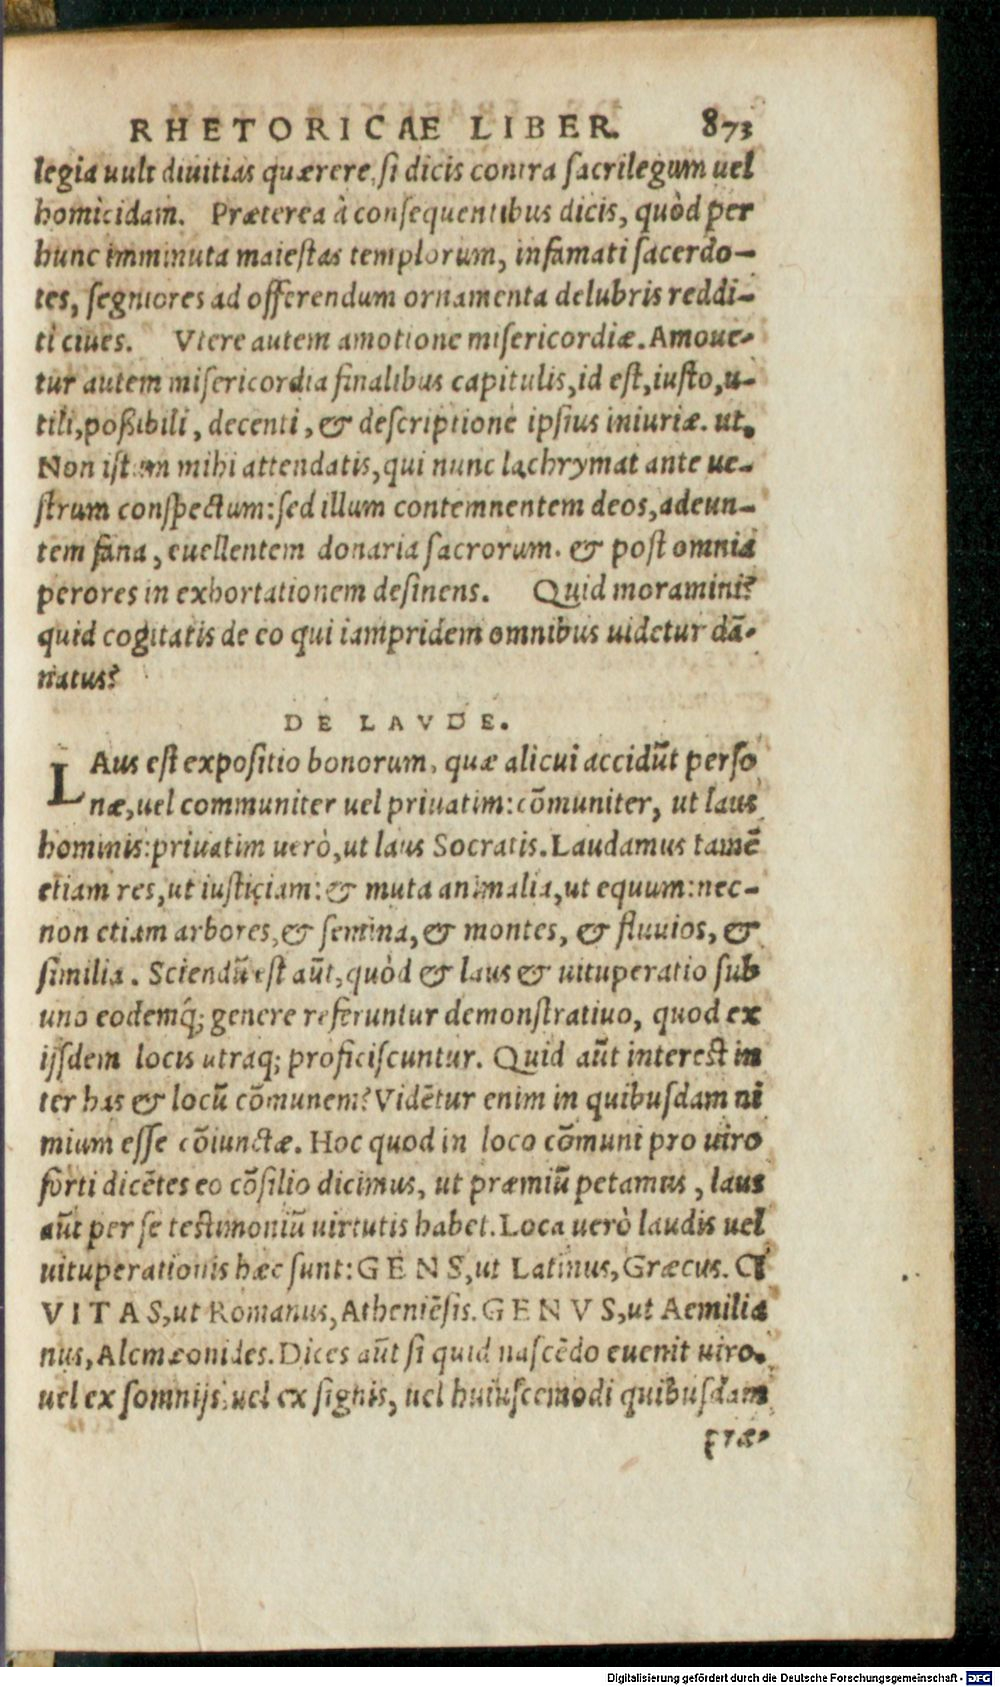 RHETORICAE LIBER. 873
legia uult diuitias quærere, si dicis contra sacrilegum uel
homicidam. Præterea à consequentibus dicis, quòd per
hunc imminuta maiestas templorum, infamati sacerdo-
tes, segniores ad offerendum ornamenta delubris reddi-
ti ciues. Vtere autem amotione misericordiæ. Amoue-
tur autem misericordia finalibus capitulis, id est, iusto, u-
tili, poßibili, decenti, & descriptione ipsius iniuriæ. ut,
Non istum mihi attendatis, qui nunc lachrymat ante ue-
strum conspectum: sed illum contemnentem deos, adeun-
tem fana, euellentem donaria sacrorum. & post omnia
perores in exhortationem desinens. Quid moramini?
quid cogitatis de eo qui iampridem omnibus uidetur dā-
natus?
DE LAVDE.
LAus est expositio bonorum, quæ alicui accidūt perso
næ, uel communiter uel priuatim: cōmuniter, ut laus
hominis: priuatim uerò, ut laus Socratis. Laudamus tamē
etiam res, ut iusticiam: & muta animalia, ut equum: nec-
non etiam arbores, & semina, & montes, & fluuios, &
similia. Sciendū est aūt, quòd & laus & uituperatio sub
uno eodemq́; genere referuntur demonstratiuo, quod ex
ijsdem locis utraq; proficiscuntur. Quid aūt interest in
ter has & locū cōmunem? Vidētur enim in quibusdam ni
mium esse cōiunctæ. Hoc quod in loco cōmuni pro uiro
forti dicētes eo cōsilio dicimus, ut præmiū petamus, laus
aūt per se testimoniū uirtutis habet. Loca uerò laudis uel
uituperationis hæc sunt: GENS, ut Latinus, Græcus. CI
VITAS, ut Romanus, Atheniēsis. GENVS, ut Aemilia
nus, Alcmæonides. Dices aūt si quid nascēdo euenit uiro,
uel ex somnijs, uel ex signis, uel huiuscemodi quibusdam
præ-
Digitalisierung gefördert durch die Deutsche Forschungsgemeinschaft - DFG